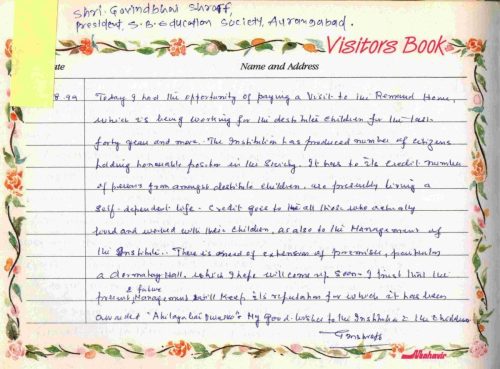 Shri. Govindbhai Shroff,
president, S.B. Education Society, Aurangabad.
Visitors Book
Date
Name and Address
8.99
Today I had the opportunity of paying a visit to the Remand Home,
which is being working for the destitute children for the last
forty years and more. The Institution has produced number of citizens
holding honourable position in the Society. It has to its credit number
of persons from amongst destitute children, are presently living a
self-dependent life. Credit goes to all those who actually
lived and worked with their children, as also to the Management of
the Institute. There is a need of extension of premises, particular
a dormitory Hall, which I hope will come up soon. I trust that the
present & future Management will keep its reputation for which it has been
awarded "Ahilyabai " My Good-wishes to the Institute & the children